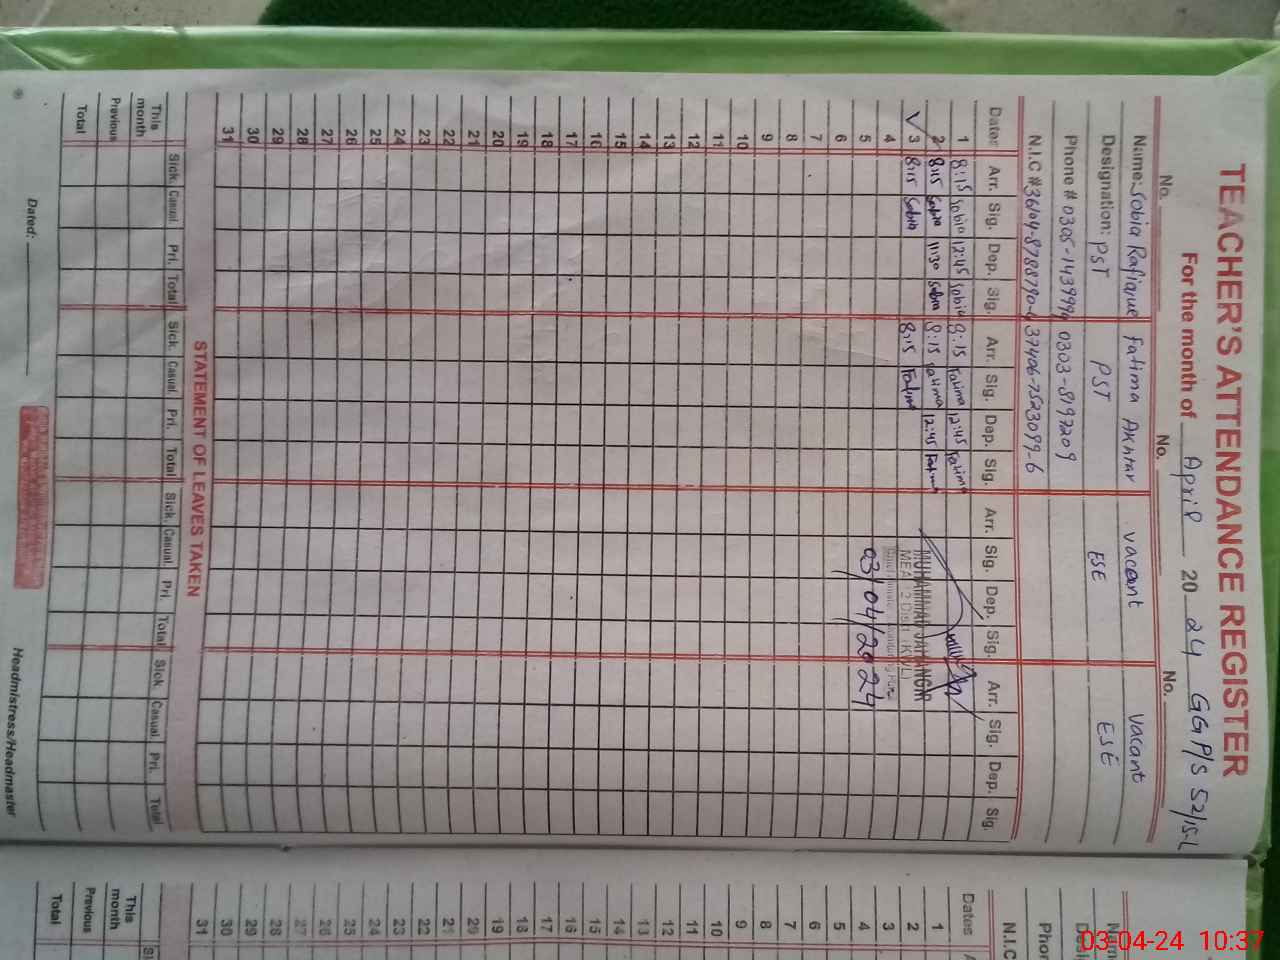 TEACHER'S ATTENDANCE REGISTER
For the month of April 20 24 GGP/S 52/15-L
No. No. No.
Name: Sobia Rafique Fatima Akhtar vacant vacant
Designation: PST PST ESE ESE
Phone # 0303-8197209
N.I.C # 37406-7523099-6
Dates Arr. Sig. Dep. Sig. Arr. Sig. Dep. Sig. Arr. Sig. Dep. Sig. Arr. Sig. Dep. Sig.
1 8:15 Sobia 12:45 Sobia 8:15 Fatima 12:45 Fatima
2 8:15 Sobia 11:30 Sobia 8:15 Fatima 12:45 Fatima
3 8:15 Sobia 8:15 Fatima
MUHAMMAD JAHANGIR
03/04/2024
4
5
6
7
8
9
10
11
12
13
14
15
16
17
18
19
20
21
22
23
24
25
26
27
28
29
30
31
STATEMENT OF LEAVES TAKEN
Sick. Casual. Pri. Total Sick. Casual. Pri. Total Sick. Casual. Pri. Total Sick Casual. Pri. Total
This month
Previous
Total
Dated: Headmistress/Headmaster
Dates
N.I.C
1
2
3
4
5
6
7
8
9
10
11
12
13
14
15
16
17
18
19
20
21
22
23
24
25
26
27
28
29
30
31
This month
Previous
Total
03-04-24 10:37